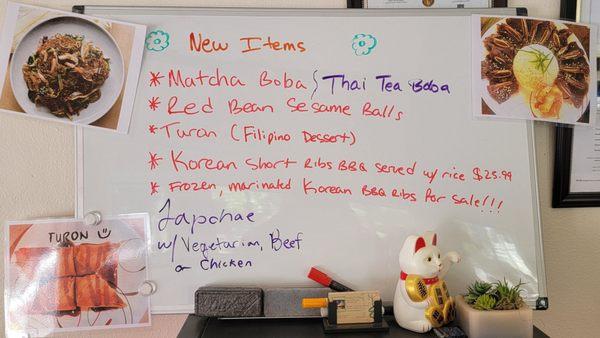 New Items
* Matcha Boba / Thai Tea Boba
* Red Bean Sesame Balls
* Turon (Filipino Dessert)
* Korean Short Ribs BBQ served w/ rice $25.99
* Frozen, marinated Korean BBQ Ribs for sale!!!
Japchae
w/ Vegetarian, Beef
or Chicken
TURON